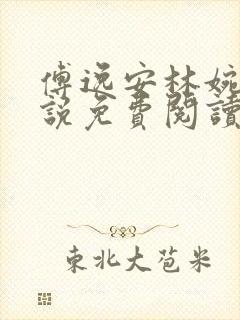 傅逸安林婉
說免費閱讀
東北大苞米